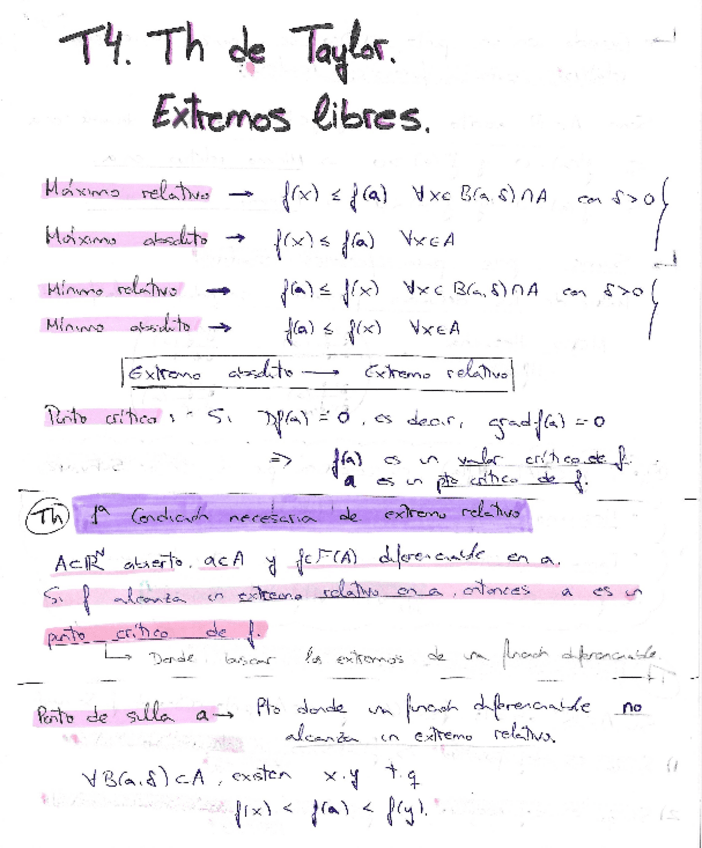 T4. Th de Taylor.
Extremos libres.
Máximo relativo → f(x) ≤ f(a) ∀x∈B(a,δ)∩A con δ>0
Máximo absoluto → f(x) ≤ f(a) ∀x∈A
Mínimo relativo → f(a) ≤ f(x) ∀x∈B(a,δ)∩A con δ>0
Mínimo absoluto → f(a) ≤ f(x) ∀x∈A
Extremo absoluto → Extremo relativo
Punto crítico :- Si Df(a) = 0, es decir, gradf(a) = 0
=> f(a) es un valor crítico de f.
a es un pto crítico de f.
Th 1ª Condición necesaria de extremo relativo
A⊂ℝᴺ abierto, a∈A y f∈F(A) diferenciable en a.
Si f alcanza un extremo relativo en a, entonces a es un
punto crítico de f.
↳ Donde buscar los extremos de una función diferenciable.
Punto de silla a → Pto donde una función diferenciable no
alcanza un extremo relativo.
∀B(a,δ)⊂A, existen x,y t.q
f(x) < f(a) < f(y).